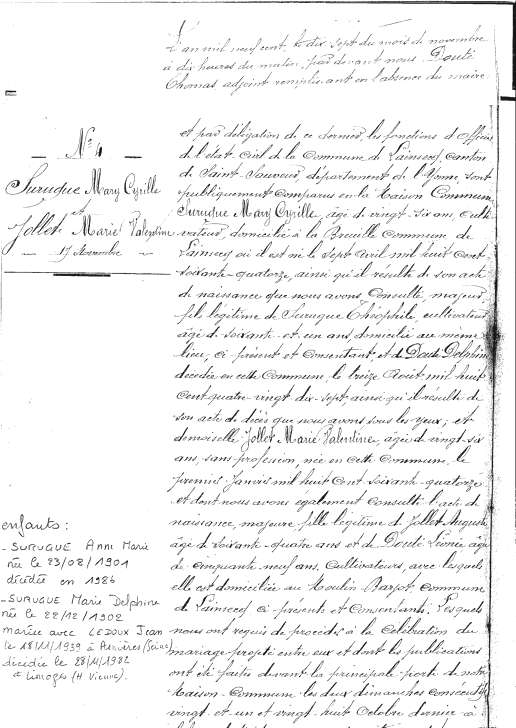 L'an mil neuf cent, le dix sept du mois de novembre
à dix heures du matin, par devant nous Douté
Thomas adjoint remplissant en l'absence du maire
et par délégation de ce dernier, les fonctions d'Officier
de l'état civil de la Commune de Lainsecq, canton
de Saint-Sauveur, département de l'Yonne, sont
publiquement comparus en la Maison Commune
Surugue Mary Cyrille, âgé de vingt-six ans, culti-
vateur, domicilié à la Breuille Commune de
Lainsecq où il est né le sept avril mil huit cent
soixante-quatorze, ainsi qu'il résulte de son acte
de naissance que nous avons consulté, majeur,
fils légitime de Surugue Théophile, cultivateur
âgé de soixante et un ans, domicilié au même
lieu, ci présent et consentant et de Douté Delphine
décédée en cette Commune, le treize Août mil huit
cent quatre-vingt dix-sept, ainsi qu'il résulte de
son acte de décès que nous avons sous les yeux; et
demoiselle Jollet Marie Valentine, âgée de vingt-six
ans, sans profession, née en cette Commune, le
premier Janvier mil huit cent soixante-quatorze
et dont nous avons également consulté l'acte de
naissance, majeure fille légitime de Jollet Auguste
âgé de soixante-quatre ans et de Douté Léonie âgée
de cinquante neuf ans, Cultivateurs, avec lesquels
elle est domiciliée au Moulin Barjot, commune
de Lainsecq ci présents et consentants. Lesquels
nous ont requis de procéder à la Célébration du
mariage projeté entre eux et dont les publications
ont été faites devant la principale porte de notre
Maison-Commune les deux dimanches consécutifs
vingt et un et vingt-huit Octobre dernier à
N° 4
Surugue Mary Cyrille
et
Jollet Marie Valentine
17 Novembre
enfants :
- SURUGUE Anne Marie
née le 23/08/1901
décédée en 1986
- SURUGUE Marie Delphine
née le 22/12/1902
mariée avec LEDOUX Jean
le 18/11/1939 à Asnières (Seine)
décédée le 28/11/1982
à Limoges (H Vienne).